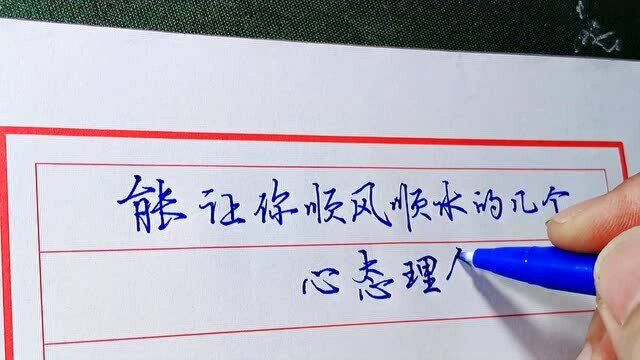 能让你顺风顺水的几个
心态理